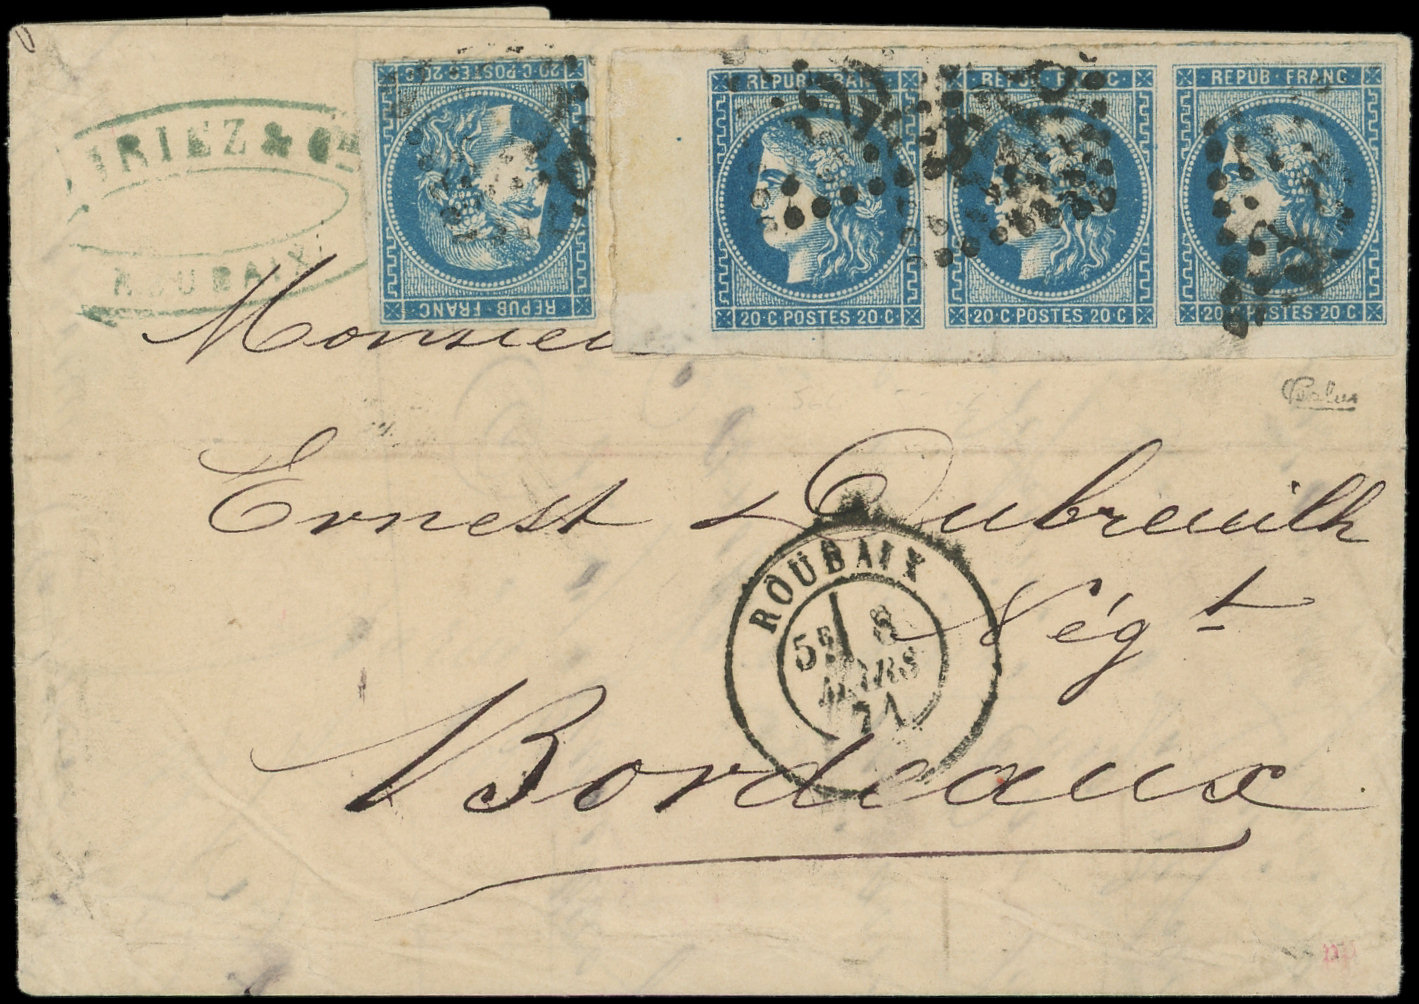 & Cie
ROUBAIX
20·C·POSTES·20·C
REPUB·FRANC
REPUB·FRANC
REPUB·FRANC
REPUB·FRANC
20·C·POSTES·20·C
20·C·POSTES·20·C
20·C·POSTES·20·C
Monsieu
Ernest Dubreuilh
Négt
Bordeaux
ROUBAIX
5E 8
MARS
71